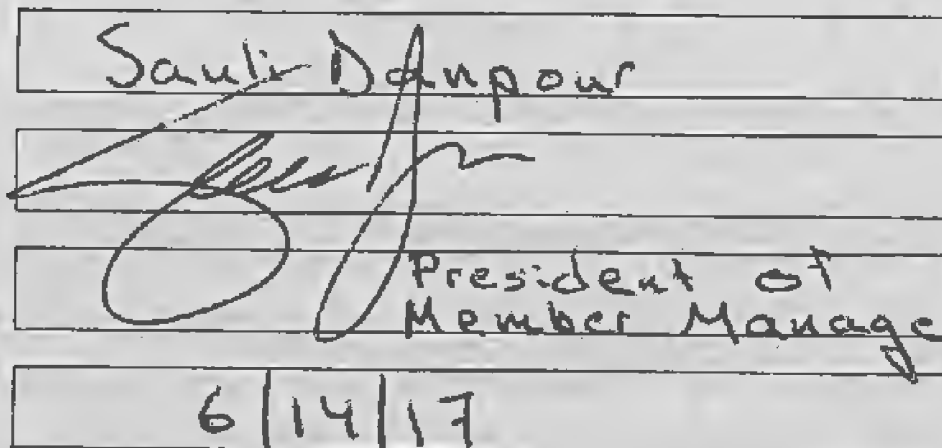 Sauli Danpour
President of
Member Manage
6/14/17